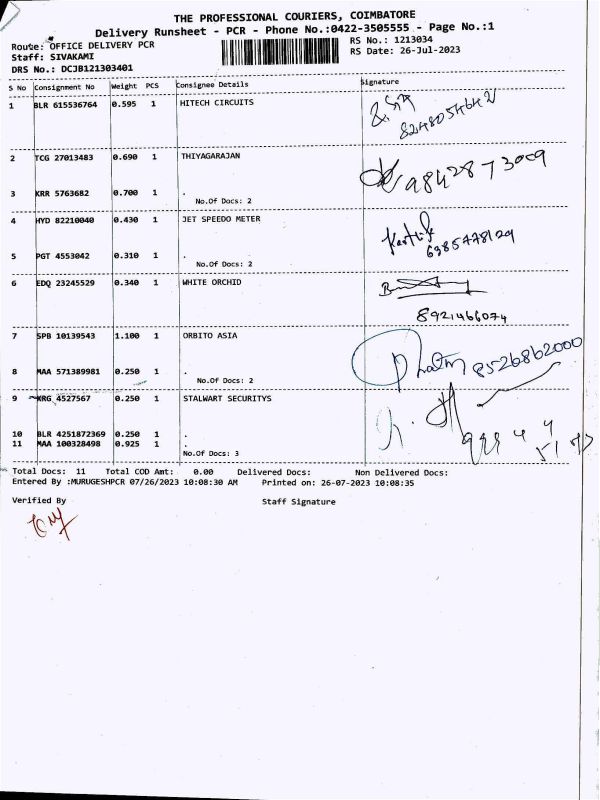 THE PROFESSIONAL COURIERS, COIMBATORE
Delivery Runsheet - PCR - Phone No.:0422-3505555 - Page No.:1
Route: OFFICE DELIVERY PCR RS No.: 1213034
Staff: SIVAKAMI RS Date: 26-Jul-2023
DRS No.: DCJB121303401
S No Consignment No Weight PCS Consignee Details Signature
1 BLR 615536764 0.595 1 HITECH CIRCUITS
8248054642
2 TCG 27013483 0.690 1 THIYAGARAJAN
9842873009
3 KRR 5763682 0.700 1 .
No.Of Docs: 2
4 HYD 82210040 0.430 1 JET SPEEDO METER
Karthik
6385478129
5 PGT 4553042 0.310 1 .
No.Of Docs: 2
6 EDQ 23245529 0.340 1 WHITE ORCHID
8921466074
7 SPB 10139543 1.100 1 ORBITO ASIA
8526862000
8 MAA 571389981 0.250 1 .
No.Of Docs: 2
9 KRG 4527567 0.250 1 STALWART SECURITYS
10 BLR 4251872369 0.250 1 .
11 MAA 100328498 0.925 1 .
No.Of Docs: 3
Total Docs: 11 Total COD Amt: 0.00 Delivered Docs: Non Delivered Docs:
Entered By :MURUGESHPCR 07/26/2023 10:08:30 AM Printed on: 26-07-2023 10:08:35
Verified By Staff Signature